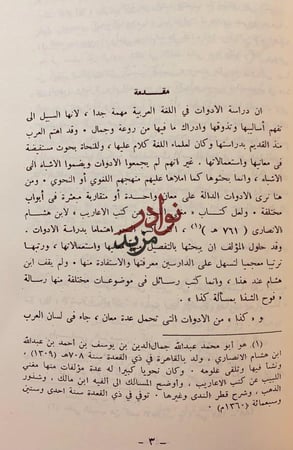 مقدمة
ان دراسة الأدوات في اللغة العربية مهمة جدا ، لانها السبيل الى
تفهم أساليبها وتذوقها وادراك ما فيها من روعة وجمال . وقد اهتم العرب
منذ القديم بدراستها وكان لعلماء اللغة كلام عليها ، وللنحاة بحوث مستفيضة
في معانيها واستعمالاتها . غير انهم لم يجمعوا الأدوات ويضموا الأشباه الى
الأشباه ، وانما بحثوها كما املاها عليهم منهجهم اللغوي أو النحوي . ومن
هنا نرى الأدوات الدالة على معان واحدة أو متقاربة مبعثرة في أبواب
مختلفة . ولعل كتاب « من كتب الاعاريب » لابن هشام
الانصاري ( ٧٦١ هـ )(١) اهتماما بدراسة الأدوات .
وقد حاول المؤلف ان يبحثها بالتفصيل واستعمالاتها ، ورتبها
ترتيبا معجميا لتسهل على الدارسين معرفتها والاستفادة منها . ولم يقف ابن
هشام عند هذا ، وانما كتب رسائل في موضوعات مختلفة منها رسالة
« فوح الشذا بمسألة كذا » .
و « كذا » من الأدوات التي تحمل عدة معان ، جاء في لسان العرب
(١) هو أبو محمد عبدالله جمال الدين بن يوسف بن أحمد بن عبدالله
ابن هشام الانصاري ، ولد بالقاهرة في ذي القعدة سنة ٧٠٨هـ (١٣٠٩)
ونشأ فيها وتلقى علومه . وكان نحويا كبيرا له عدة مؤلفات منها مغني
اللبيب عن كتب الاعاريب ، وأوضح المسالك الى ألفية ابن مالك ، وشذور
الذهب ، وشرح قطر الندى وغيرها . توفي في ذي القعدة سنة احدى وستين
وسبعمائة (١٣٦٠م) .
- ٣ -
نوادر
مزيد